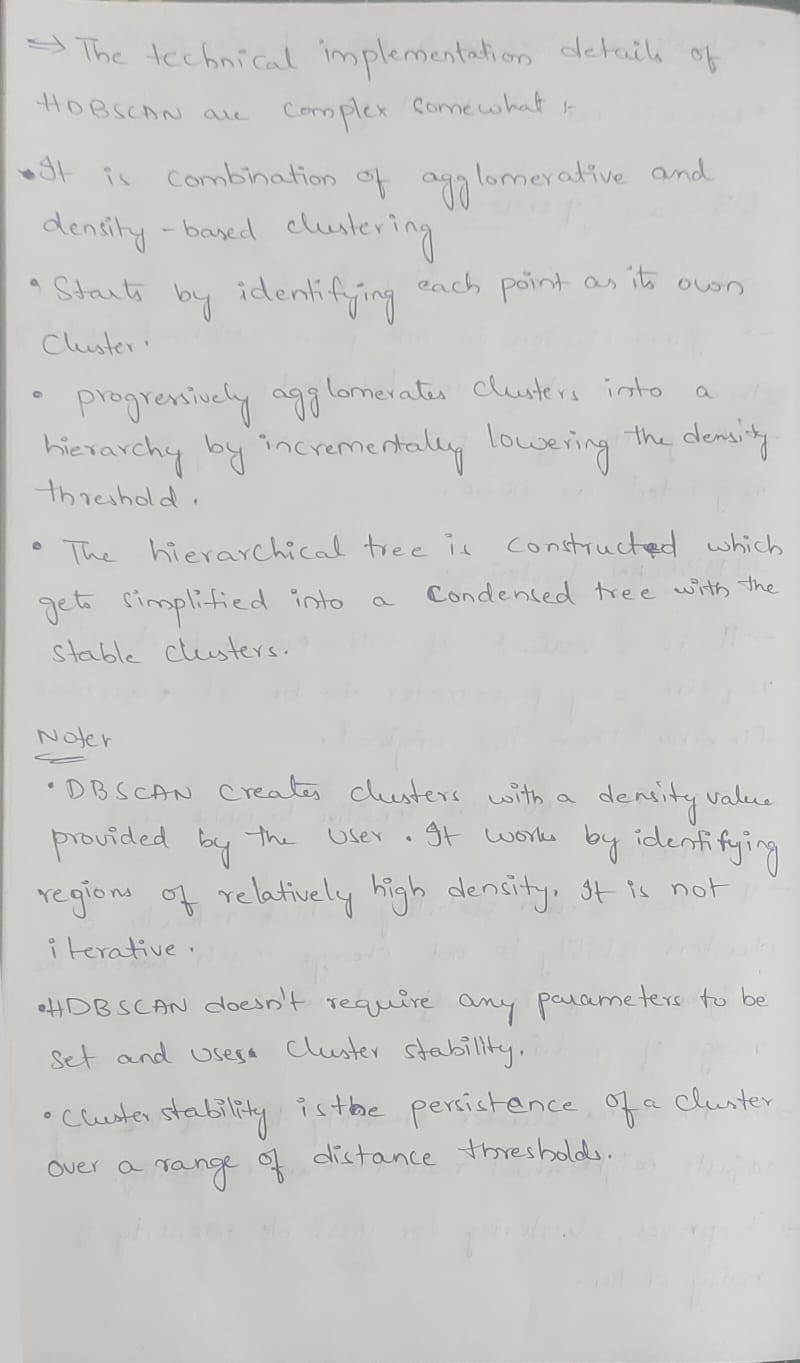 ⇒ The technical implementation details of
HDBSCAN are complex somewhat :-
• It is combination of agglomerative and
density-based clustering
• Starts by identifying each point as its own
Cluster.
• progressively agglomerates clusters into a
hierarchy by incrementally lowering the density
threshold.
• The hierarchical tree is constructed which
gets simplified into a Condensed tree with the
stable clusters.
Note:
• DBSCAN creates clusters with a density value
provided by the user. It works by identifying
regions of relatively high density. It is not
iterative.
• HDBSCAN doesn't require any parameters to be
set and uses cluster stability.
• Cluster stability is the persistance of a cluster
over a range of distance thresholds.